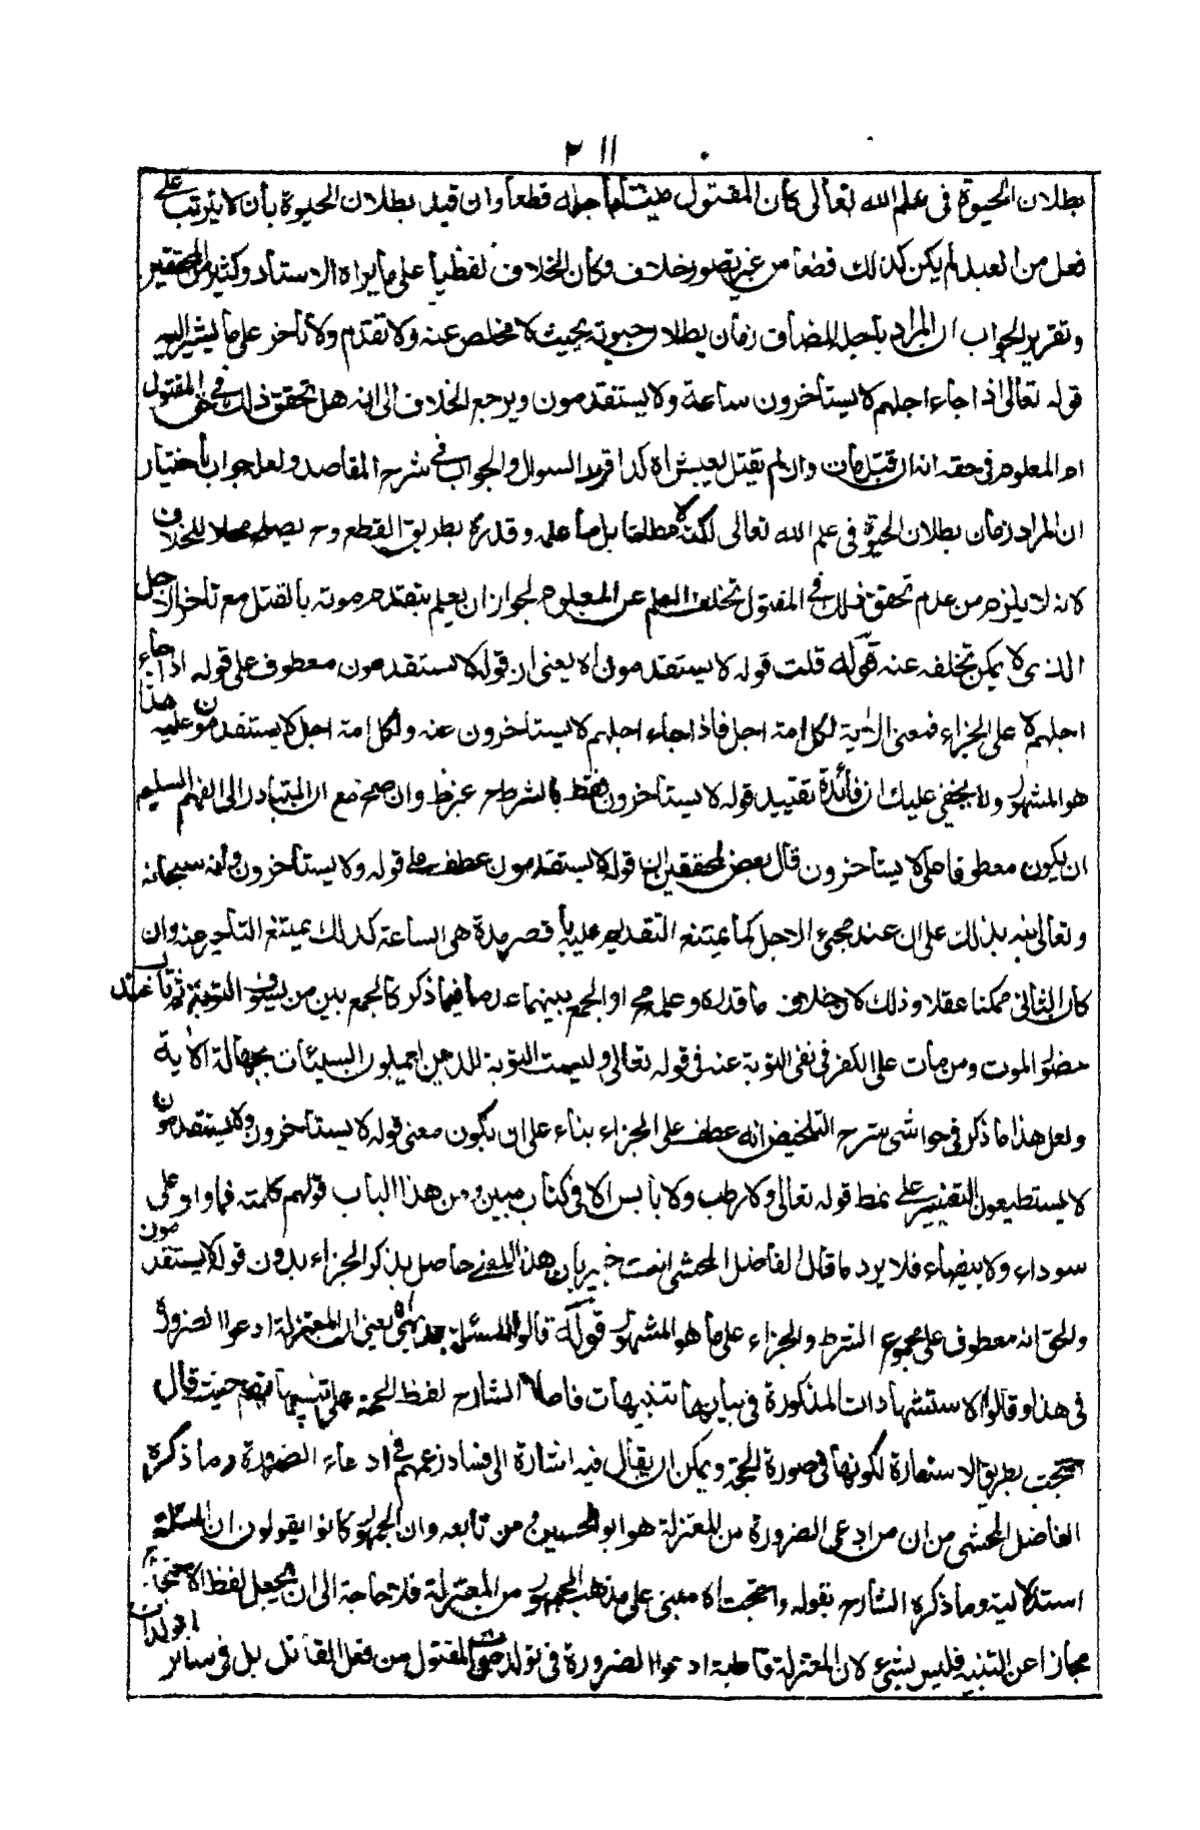 ٢١١
بطلان الحيوة فى علم الله تعالى كان المقتول ميتا باجله قطعا وان قيد بطلان الحيوة بأن لا يترتب على
فعل من العبد لم يكن كذلك قطعا من غير تصور خلاف وكان الخلاف لفظيا على ما يراه الاستاد وكثير من المحققين
وتقرير الجواب ان المراد باجل المضاف زمان بطلان حيوته بحيث لا مخلص عنه ولا تقدم ولا تأخر على ما يشير اليه
قوله تعالى اذا جاء اجلهم لا يستأخرون ساعة ولا يستقدمون ويرجع الخلاف الى انه هل تحقق ذلك فى حق المقتول
ام المعلوم فى حقه انه ان قتل مات وان لم يقتل يعيش اه كذا قرر السوال والجواب فى شرح المقاصد ولعل جواب باختيار
ان المراد زمان بطلان الحيوة فى علم الله تعالى لكنه لا مطلقا بل ما علمه وقدره بطريق القطع وح يصلح محلا للخلاف
لانه لا يلزم من عدم تحقق ذلك فى المقتول تخلف العلم عن المعلوم لجواز ان يعلم بتقدم موته بالقتل مع تأخر الاجل
الذى لا يمكن تخلفه عنه قوله قلت قوله لا يستقدمون اه يعنى ان قوله لا يستقدمون معطوف على قوله اذا جاء
اجلهم لا على الجزاء فمعنى الاية لكل امة اجل فاذا جاء اجلهم لا يستأخرون عنه ولكل امة اجل لا يستقدمون عليه هذا
هو المشهور ولا يخفى عليك ان فائدة تقييد قوله لا يستأخرون فقط بالشرط ح غير ظ وان صح مع ان المتبادر الى الفهم السليم
ان يكون معطوفا على لا يستأخرون قال بعض المحققين ان قوله لا يستقدمون عطف على قوله ولا يستأخرون لانه سبحانه
وتعالى نبه بذلك على ان عند مجئ الاجل كما يمتنع التقديم عليه باقصر مدة هى الساعة كذلك يمتنع التأخير عنه وان
كان الثانى ممكنا عقلا وذلك لان خلاف ما قدره وعلمه مح او الجمع بينهما فيما ذكر كالجمع بين من يسوف التوبة ثم تاب عند
حضور الموت ومن مات على الكفر فى نفى التوبة عنه فى قوله تعالى وليست التوبة للذين يعملون السيئات بجهالة الاية
ولعل هذا ما ذكر فى حواشى شرح التلخيص انه عطف على الجزاء بناء على ان يكون معنى قوله لا يستأخرون ولا يستقدمون
لا يستطيعون التغيير على نمط قوله تعالى ولا رطب ولا يابس الا فى كتاب مبين ومن هذا الباب قولهم كلمته فما راد على
سوداء ولا بيضاء فلا يرد ما قال الفاضل المحشى انت خبير بان هذا المعنى حاصل بذكر الجزاء بدون قوله لا يستقدمون
والحق انه معطوف على مجموع الشرط والجزاء على ما هو المشهور قوله قالوا المسئلة بديهى اه يعنى ان المعتزلة ادعوا الضرورة
فى هذا وقالوا الاستشهادات المذكورة فى بيانها تنبيهات فاطلاق الشارح لفظ الحجة على تنبيهاتهم حيث قال
احتجت بطريق الاستعارة لكونها فى صورة الحجة ويمكن ان يقال فيه اشارة الى فساد زعمهم فى ادعاء الضرورة وما ذكره
الفاضل المحشى من ان من ادعى الضرورة من المعتزلة هو ابو الحسين ومن تابعه وان الجمهور كانوا يقولون ان المسئلة
استدلالية وما ذكره الشارح بقوله واحتجت اه مبنى على مذهب الجمهور من المعتزلة فلا حاجة الى ان يجعل لفظ الاحتجاج
مجازا عن التنبيه فليس بشىء لان المعتزلة قاطبة ادعوا الضرورة فى تولد موت المقتول من فعل القاتل بل فى سائر